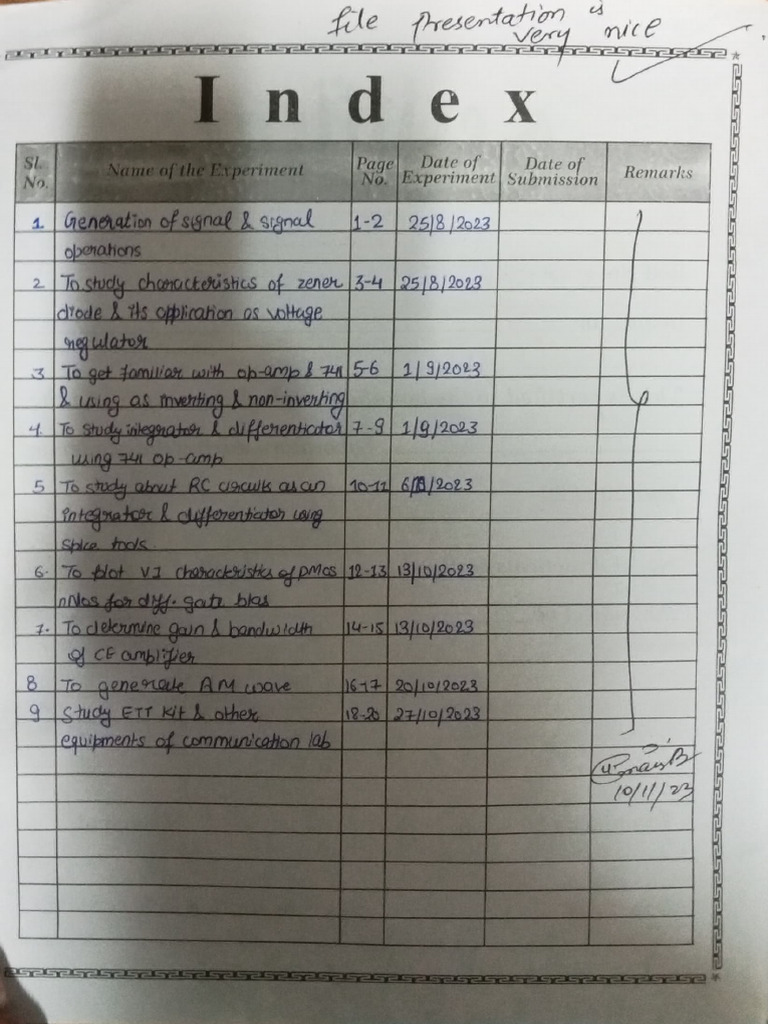 file presentation is
very nice
Index
Sl. No. Name of the Experiment Page No. Date of Experiment Date of Submission Remarks
1. Generation of signal & signal 1-2 25/8/2023
operations
2 To study characteristics of zener 3-4 25/8/2023
diode & its application as voltage
regulator
3 To get familiar with op-amp & 741 5-6 1/9/2023
& using as inverting & non-inverting
4. To study integrator & differentiator 7-9 1/9/2023
using 741 op-amp
5 To study about RC circuits as an 10-11 /2023
integrator & differentiator using
spice tools.
6. To plot VI characteristics of PMOS 12-13 13/10/2023
nMos for diff. gate bias
7. To determine gain & bandwidth 14-15 13/10/2023
of CE amplifier
8 To generate AM wave 16-17 20/10/2023
9 Study ETT Kit & other 18-20 27/10/2023
equipments of communication lab
10/11/23